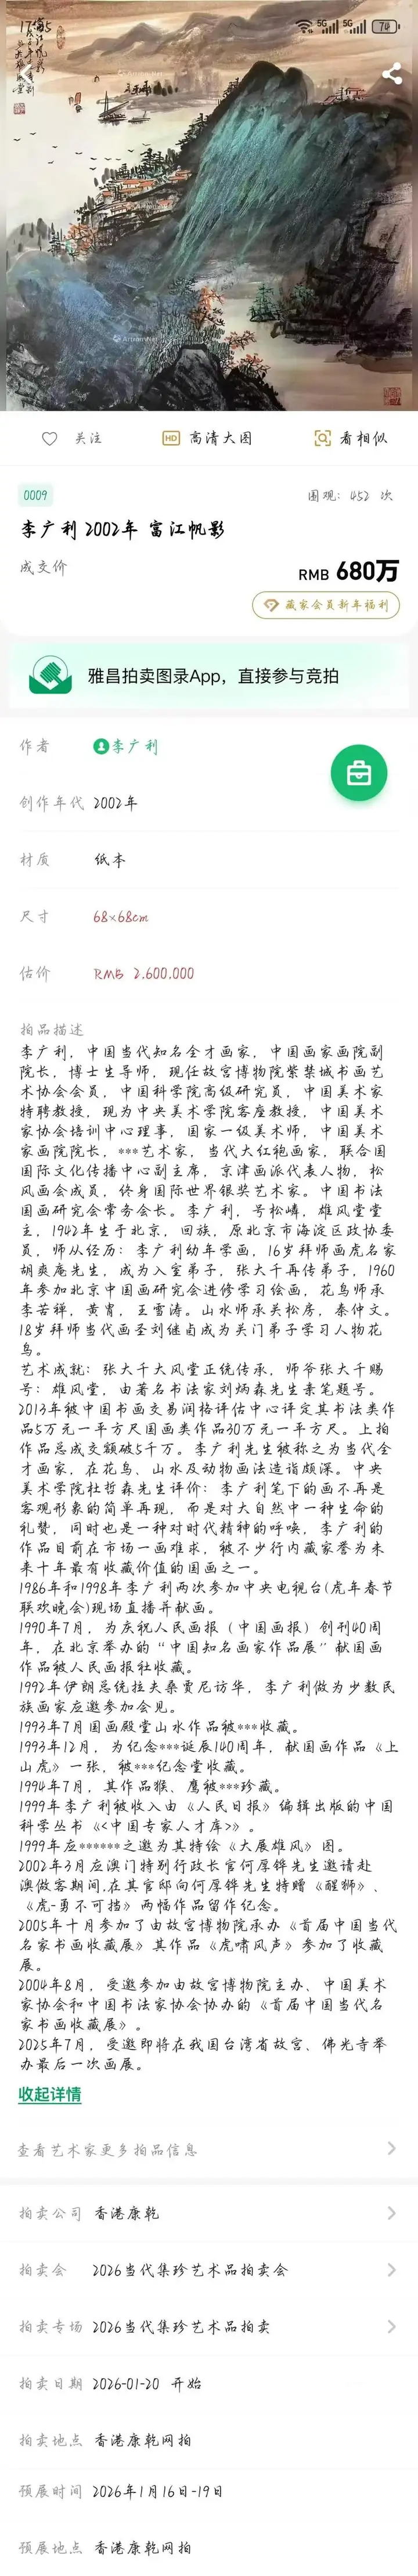 5G 5G 70
Artron.Net
HD
关注
高清大图
看相似
0009
围观：452 次
李广利 2002年 富江帆影
成交价
RMB 680万
藏家会员新年福利
雅昌拍卖图录App，直接参与竞拍
作者 李广利
创作年代 2002年
材质 纸本
尺寸 68×68cm
估价 RMB 2.600.000
拍品描述
李广利，中国当代知名全才画家，中国画家画院副
院长，博士生导师，现任故宫博物院紫禁城书画艺
术协会会员，中国科学院高级研究员，中国美术家
特聘教授，现为中央美术学院客座教授，中国美术
家协会培训中心理事，国家一级美术师，中国美术
家画院院长，***艺术家，当代大红袍画家，联合国
国际文化传播中心副主席，京津画派代表人物，松
风画会成员，终身国际世界银奖艺术家。中国书法
国画研究会常务会长。李广利，号松嶙，雄风堂堂
主，1942年生于北京，回族，原北京市海淀区政协委
员，师从经历：李广利幼年学画，16岁拜师画虎名家
胡爽庵先生，成为入室弟子，张大千再传弟子，1960
年参加北京中国画研究会进修学习绘画，花鸟师承
李苦禅，黄胄，王雪涛。山水师承关松房，秦仲文。
18岁拜师当代画圣刘继卣成为关门弟子学习人物花
鸟。
艺术成就：张大千大风堂正统传承，师爷张大千赐
号：雄风堂，由著名书法家刘炳森先生亲笔题号。
2013年被中国书画交易润格评估中心评定其书法类作
品5万元一平方尺国画类作品30万元一平方尺。上拍
作品总成交额破5千万。李广利先生被称之为当代全
才画家，在花鸟、山水及动物画法造诣颇深。中央
美术学院杜哲森先生评价：李广利笔下的画不再是
客观形象的简单再现，而是对大自然中一种生命的
礼赞，同时也是一种对时代精神的呼唤，李广利的
作品目前在市场一画难求，被不少行内藏家誉为未
来十年最有收藏价值的国画之一。
1986年和1998年李广利两次参加中央电视台(虎年春节
联欢晚会)现场直播并献画。
1990年7月，为庆祝人民画报（中国画报）创刊40周
年，在北京举办的“中国知名画家作品展”献国画
作品被人民画报社收藏。
1992年伊朗总统拉夫桑贾尼访华，李广利做为少数民
族画家应邀参加会见。
1993年7月国画殿堂山水作品被***收藏。
1993年12月，为纪念***诞辰140周年，献国画作品《上
山虎》一张，被***纪念堂收藏。
1994年7月，其作品猴、鹰被***珍藏。
1999年李广利被收入由《人民日报》编辑出版的中国
科学丛书《<中国专家人才库>》。
1999年应******之邀为其特绘《大展雄风》图。
2002年3月应澳门特别行政长官何厚铧先生邀请赴
澳做客期间.在其官邸向何厚铧先生特赠《醒狮》、
《虎-勇不可挡》两幅作品留作纪念。
2005年十月参加了由故宫博物院承办《首届中国当代
名家书画收藏展》其作品《虎啸风声》参加了收藏
展。
2004年8月，受邀参加由故宫博物院主办、中国美术
家协会和中国书法家协会协办的《首届中国当代名
家书画收藏展》。
2025年7月，受邀即将在我国台湾省故宫、佛光寺举
办最后一次画展。
收起详情
查看艺术家更多拍品信息
拍卖公司 香港康乾
拍卖会 2026当代集珍艺术品拍卖会
拍卖专场 2026当代集珍艺术品拍卖
拍卖日期 2026-01-20 开始
拍卖地点 香港康乾网拍
预展时间 2026年1月16日-19日
预展地点 香港康乾网拍